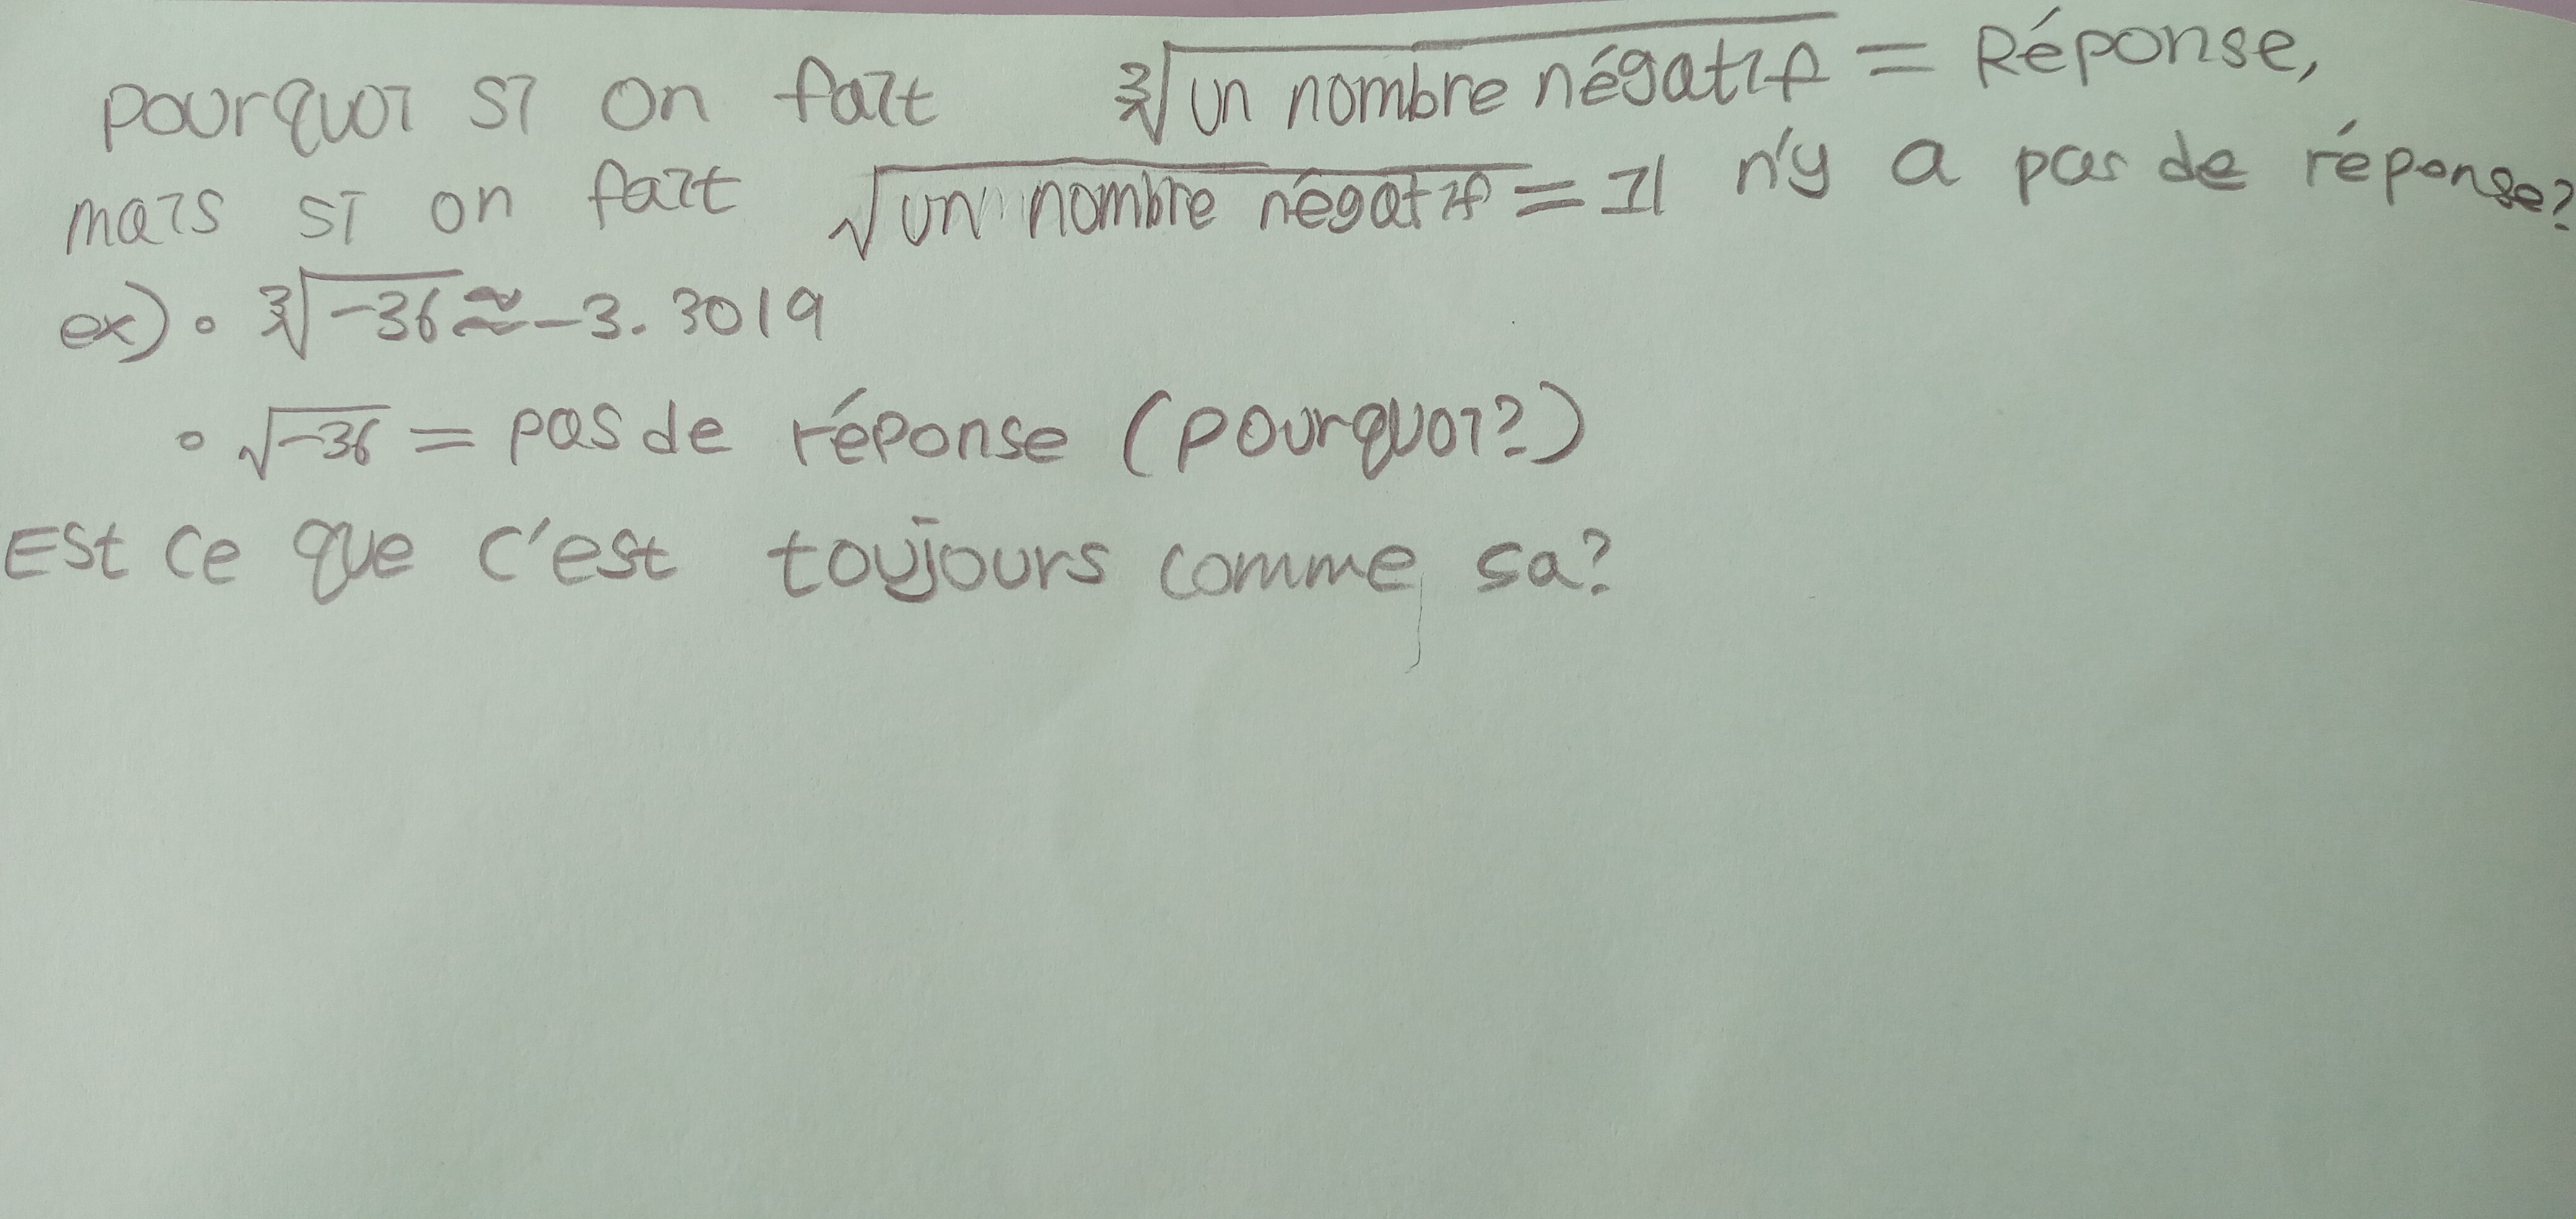 Pourquoi si on fait ∛un nombre négatif = Réponse,
mais si on fait √un nombre négatif = Il n'y a pas de réponse?
ex) • ∛-36 ≈ -3.3019
• √-36 = pas de réponse (pourquoi?)
Est ce que c'est toujours comme sa?